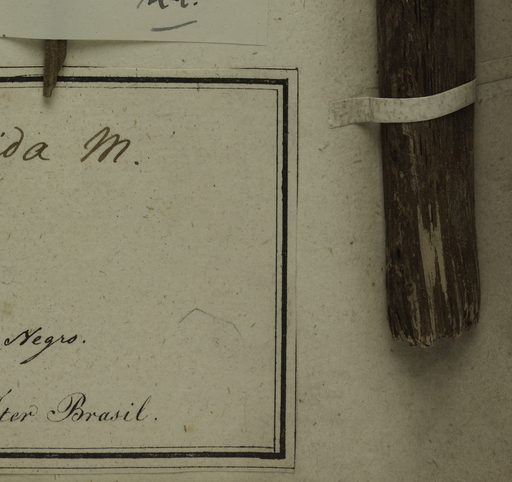 ida M.
Negro.
ter Brasil.